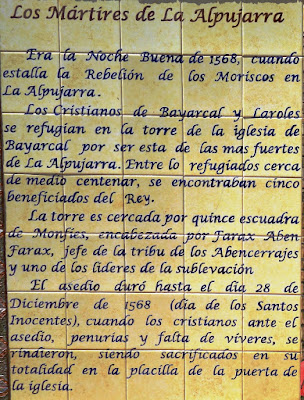 Los Mártires de La Alpujarra
Era la Noche Buena de 1568, cuando
estalla la Rebelión de los Moriscos en
La Alpujarra.
Los Cristianos de Bayarcal y Laroles
se refugian en la torre de la iglesia de
Bayarcal por ser esta de las mas fuertes
de La Alpujarra. Entre lo refugiados cerca
de medio centenar, se encontraban cinco
beneficiados del Rey.
La torre es cercada por quince escuadra
de Monfíes, encabezada por Farax Aben
Farax, jefe de la tribu de los Abencerrajes
y uno de los lideres de la sublevación
El asedio duró hasta el dia 28 de
Diciembre de 1568 (dia de los Santos
Inocentes), cuando los cristianos ante el
asedio, penurias y falta de viveres, se
rindieron, siendo sacrificados en su
totalidad en la placilla de la puerta de
la iglesia.